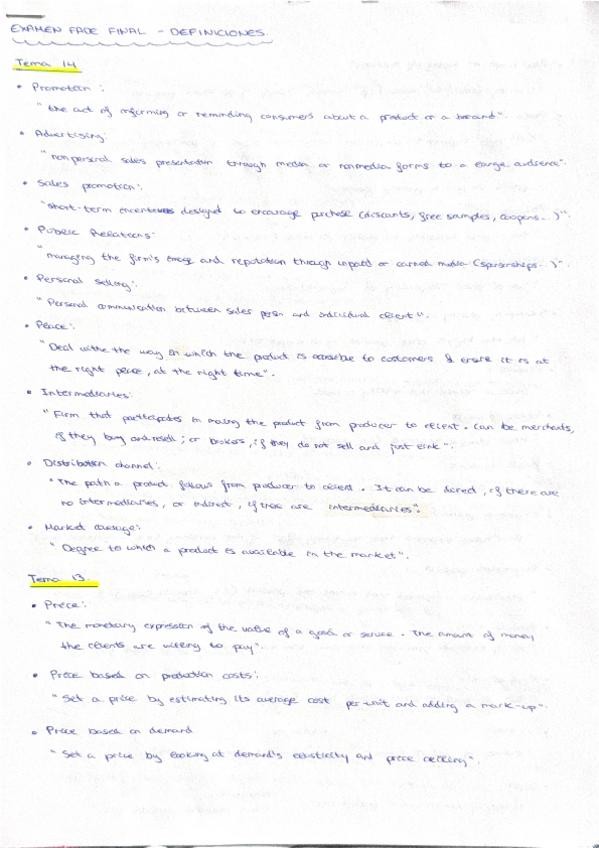 EXAMEN FADE FINAL - DEFINICIONES.
Tema 14
• Promotion :
"the act of informing or reminding consumers about a product or a brand".
• Advertising:
"nonpersonal sales presentation through media or nonmedia forms to a large audience".
• Sales promotion:
"short-term incentives designed to encourage purchase (discounts, free samples, coupons...)".
• Public Relations:
"managing the firm's image and reputation through unpaid or earned media (sponsorships...)".
• Personal selling:
"Personal communication between sales person and individual client".
• Place:
"Deal withe the way in which the product is accesible to customers & ensure it is at
the right place, at the right time".
• Intermediaries:
"Firm that participates in moving the product from producer to client. Can be merchants,
if they buy and resell; or brokers, if they do not sell and just link".
• Distribution channel:
"The path a product follows from producer to client. It can be direct, if there are
no intermediaries, or indirect, if there are intermediaries".
• Market coverage:
"Degree to which a product is available in the market".
Tema 13.
• Price:
"The monetary expression of the value of a good or service. The amount of money
the clients are willing to pay".
• Price based on production costs:
"Set a price by estimating its average cost per unit and adding a mark-up".
• Price based on demand
"Set a price by looking at demand's elasticity and price ceiling".